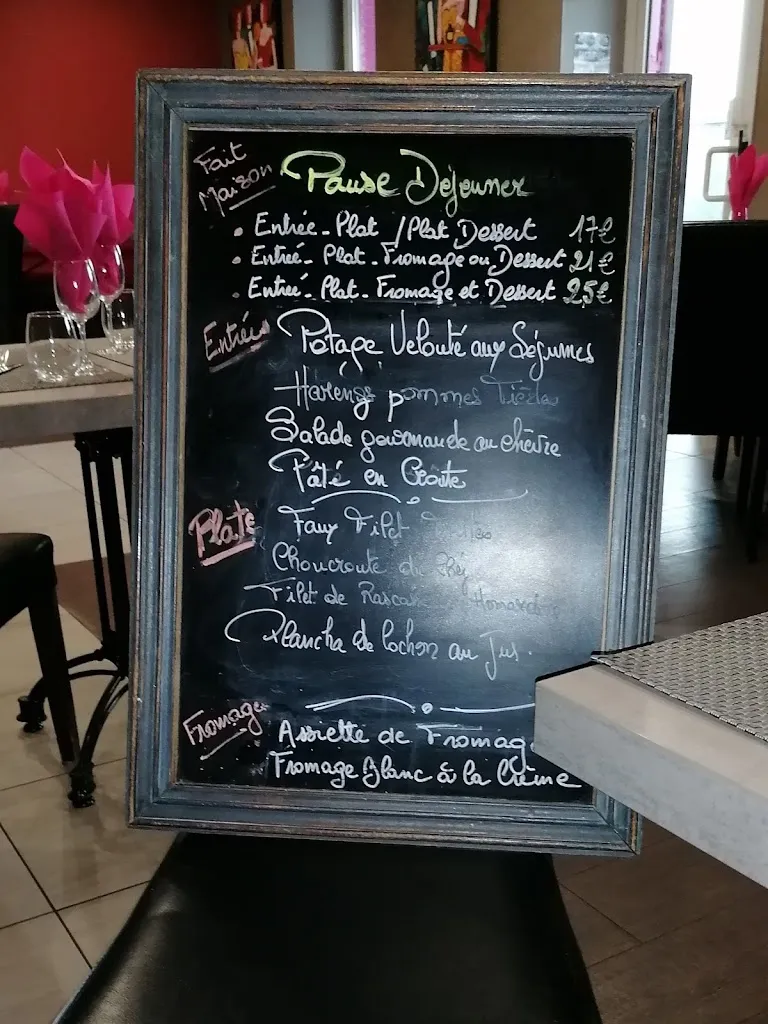 Fait Maison
Pause Déjeuner
• Entrée - Plat / Plat Dessert 17€
• Entrée - Plat - Fromage ou Dessert 21€
• Entrée - Plat - Fromage et Dessert 25€
Entrées
Potage Velouté aux Légumes
Harengs pommes Tièdes
Salade gourmande au chèvre
Pâté en Croûte
Plats
Faux Filet
Choucroute de
Filet de
Plancha de Cochon au Jus.
Fromage
Assiette de Fromage
Fromage Blanc à la Crème